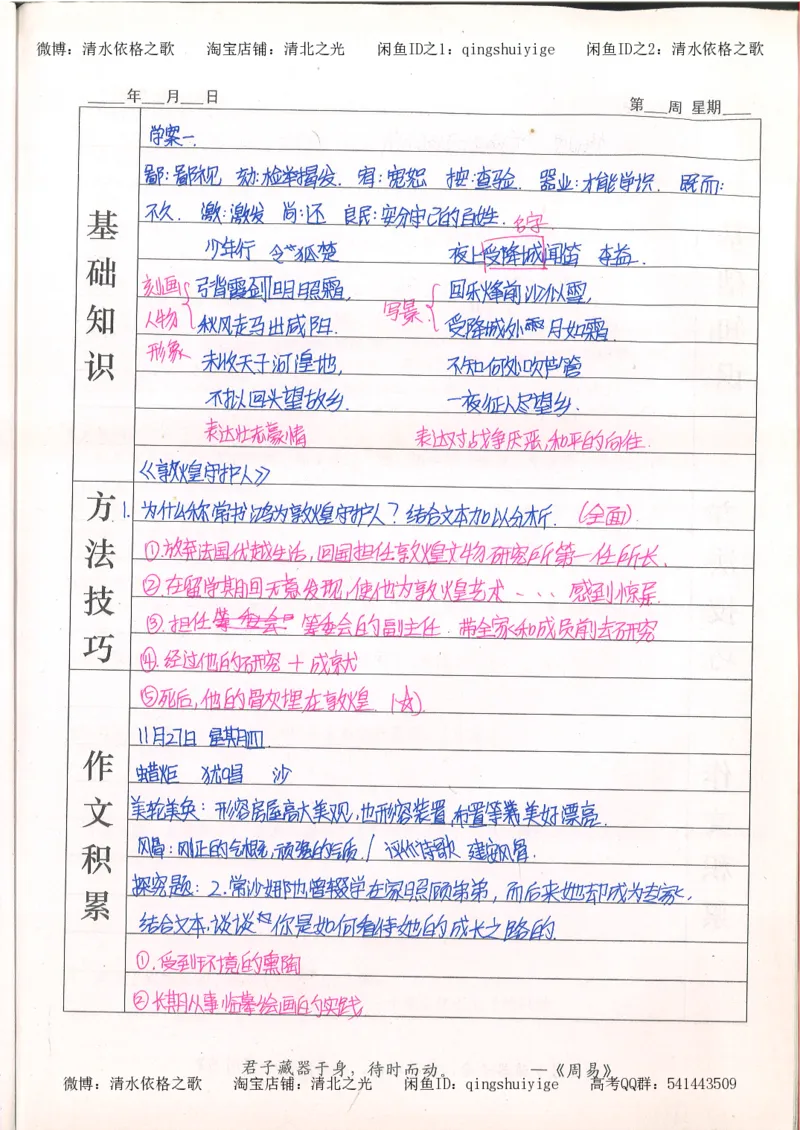 微博：清水依格之歌 淘宝店铺：清北之光 闲鱼ID之1：qingshuiyige 闲鱼ID之2：清水依格之歌
年 月 日 第 周 星期
基础知识
学案一.
鄙:鄙视 劾:检举揭发. 宥:宽恕 按:查验. 器业:才能学识. 既而:
不久. 激:激发 尚:还 良民:安分守己的百姓. 名字.
少年行 令狐楚 夜上受降城闻笛 李益.
刻画 弓背霞到明照霜, 回乐烽前沙似雪,
人物 秋风走马出咸阳. 写景. 受降城外 月如霜.
形象 未收天子河湟地, 不知何处吹芦管
不拟回头望故乡. 一夜征人尽望乡.
表达壮志豪情 表达对战争厌恶,和平的向往.
《敦煌守护人》
方法技巧
1. 为什么称常书鸿为敦煌守护人？结合文本加以分析. (全面).
①放弃法国优越生活,回国担任敦煌文物研究所第一任所长.
②在留学期间无意发现,使他为敦煌艺术、、、感到惊异.
③担任 筹委会的副主任. 带全家和成员前去研究
④.经过他的研究+成就
⑤死后,他的骨灰埋在敦煌. (☆).
作文积累
11月27日 星期四.
蜡炬 犹唱 沙
美轮美奂：形容房屋高大美观,也形容装置,布置等美好漂亮.
风骨:刚正的气概,顽强的气质./ 评价诗歌 建安风骨.
探究题：2.常沙娜也曾辍学在家照顾弟弟，而后来她却成为专家,
结合文本,谈谈 你是如何看待她的成长之路的.
①.受到环境的熏陶
②长期从事临摹绘画的实践
君子藏器于身，待时而动。 —《周易》
微博：清水依格之歌 淘宝店铺：清北之光 闲鱼ID：qingshuiyige 高考QQ群：541443509